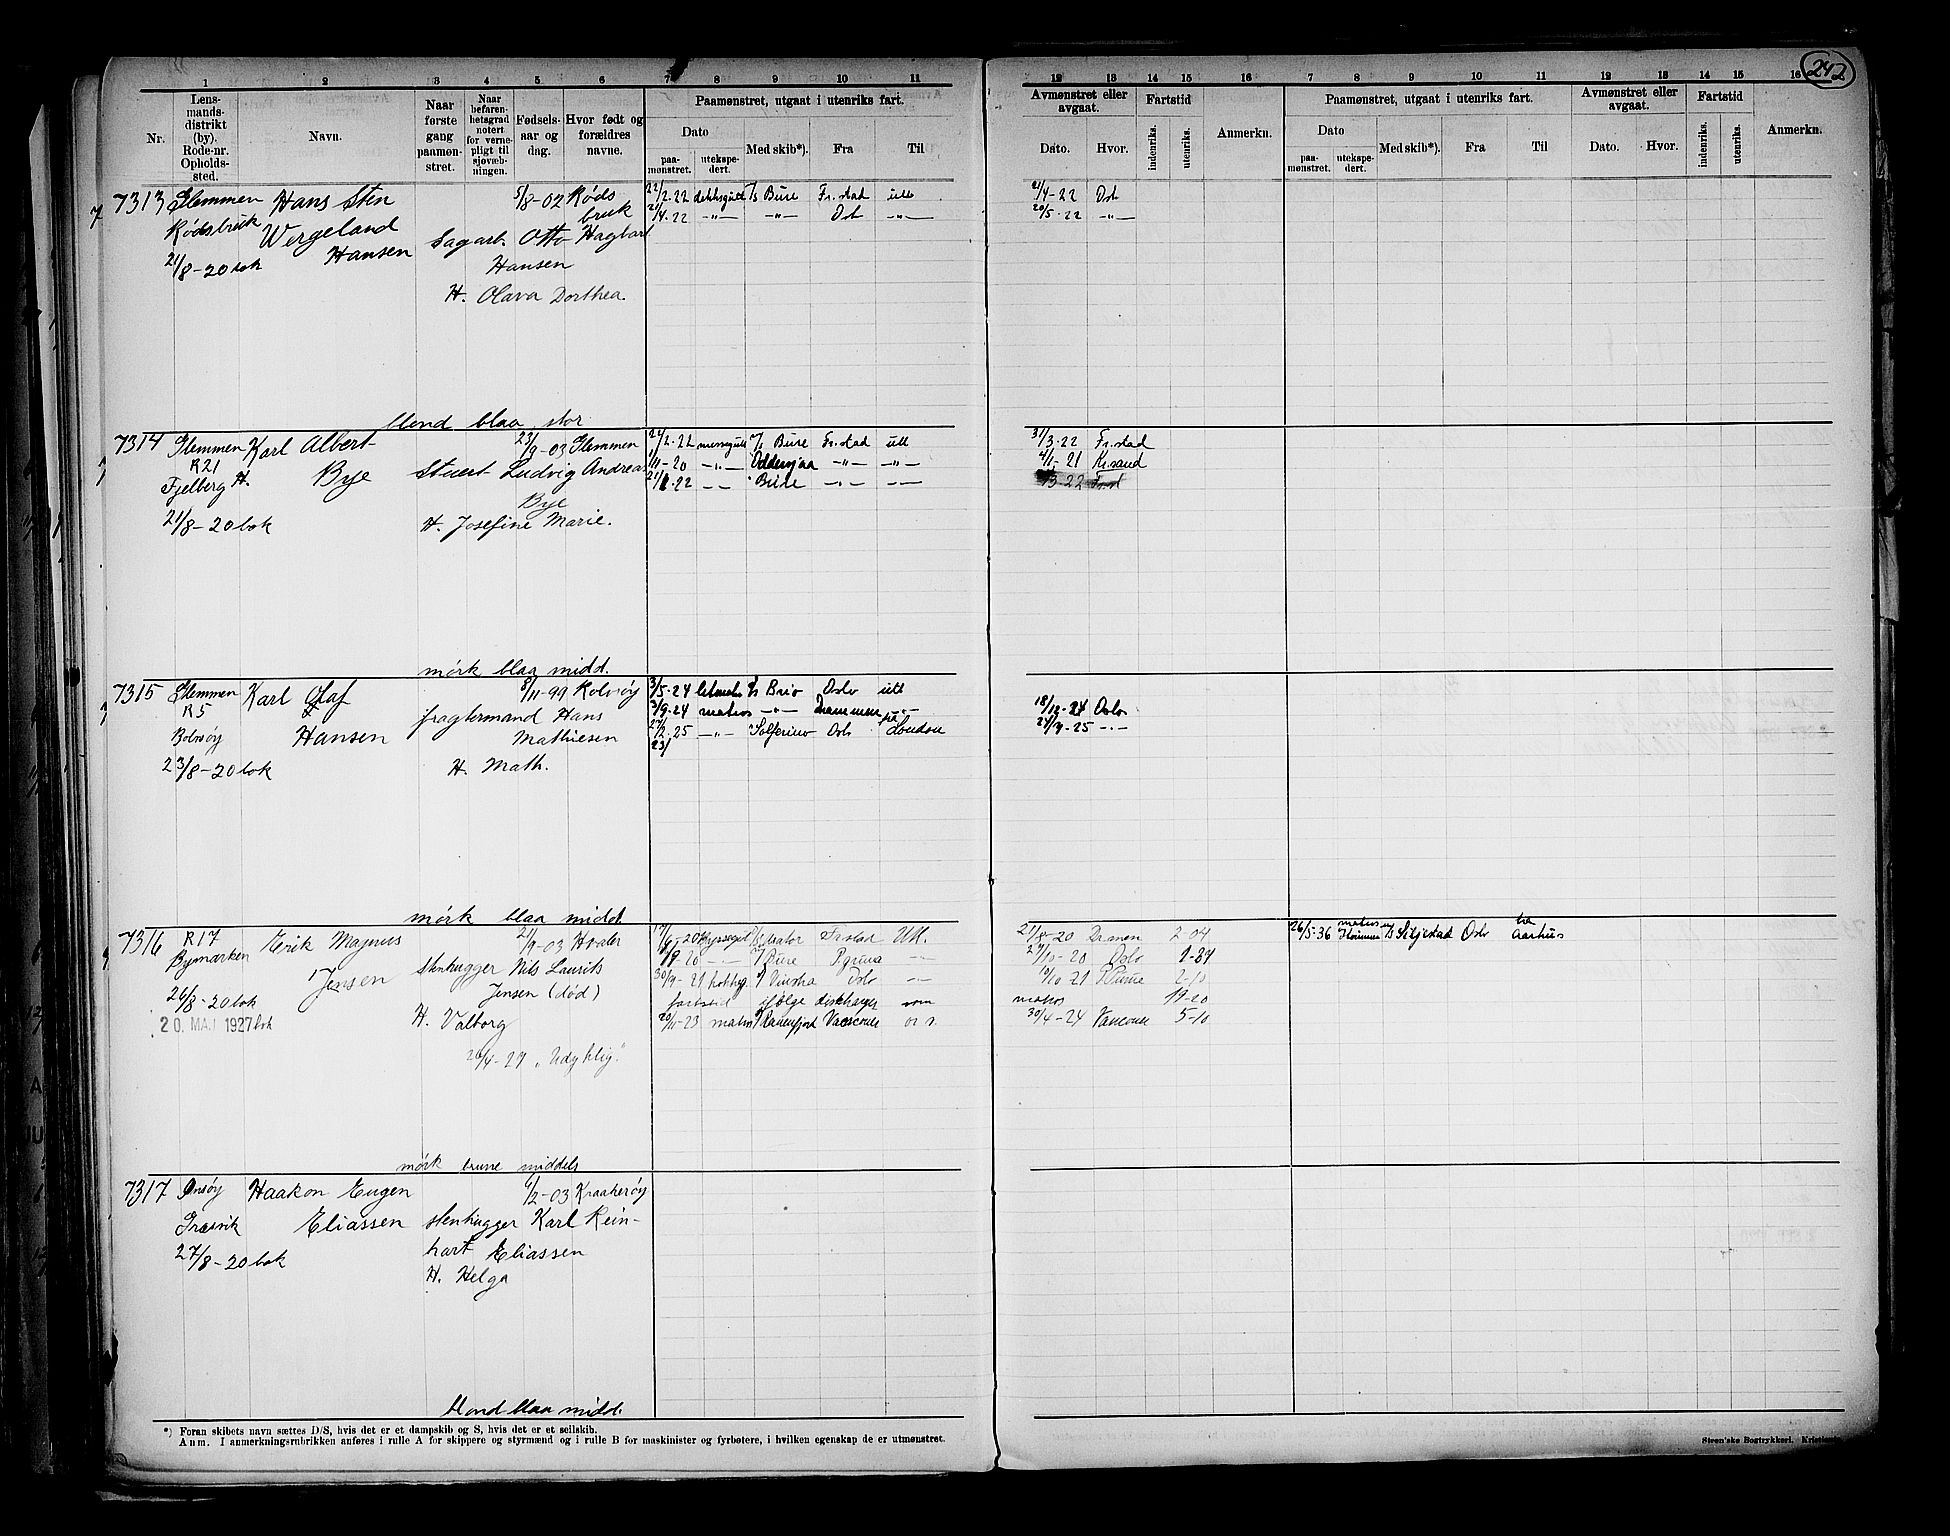 242
1 2 3 4 5 6 7 8 9 10 11 12 13 14 15 16 7 8 9 10 11 12 13 14 15 16
Nr.
Lens-
mands-
distrikt
(by).
Rode-nr.
Opholds-
sted.
Navn.
Naar
første
gang
paamøn-
stret.
Naar
befaren-
hetsgrad
notert
for verne-
pligt til
sjøvæb-
ningen.
Fødsels-
aar og
dag.
Hvor født og
forældres
navne.
Paamønstret, utgaat i utenriks fart.
Dato
paa-
mønstret.
utekspe-
dert.
Med skib*).
Fra
Til
Avmønstret eller
avgaat.
Dato.
Hvor.
Fartstid
indenriks.
utenriks.
Anmerkn.
Paamønstret, utgaat i utenriks fart.
Dato
paa-
mønstret.
utekspe-
dert.
Med skib*).
Fra
Til
Avmønstret eller
avgaat.
Dato.
Hvor.
Fartstid
indenriks.
utenriks.
Anmerkn.
7313 Glemmen Hans Sten 5/8-02 Røds
bruk
Rødsbruk Wergeland Sagarb. Otto Hagbart
21/8-20 bok Hansen Hansen
H. Olava Dorthea.
22/2-22 dekksgutt Bure Fr.stad utl
21/4-22 -"- -"- Osl -"-
21/4-22 Osl
20/5-22 -"-
blond blaa stor
7314 Glemmen Karl Albert 23/9-03 Glemmen
R21
Fjelberg H. Bye Stuert Ludvig Andreas
Bye
21/8-20 bok H. Josefine Marie.
2-22 messegutt Bure Fr.stad utl
11-20 -"- Oddersjaa -"- -"-
-22 -"- Bure -"- -"-
31/3-22 Fr.stad
4/1-21 Kr.sand
3-22
mørk blaa midd.
7315 Glemmen Karl Olaf 8/11-99 Rolvsøy
R5
Rolvsøy Hansen fragtermand Hans
Mathiesen
23/8-20 bok H. Math.
3/5-24 Brio Oslo utl
3/9-24 matros -"- Drammen -"-
27/2-25 -"- Solferino Oslo London
23/
18/12-24 Oslo
24/9-25 -"-
mørk blaa midd.
7316 R17 Erik Magnus 21/9-03 Hvaler
Bymarken Jensen stenhugger Nils Laurits
26/8-20 bok Jensen (død)
20. MAJ 1927 bok H. Valborg
26/4-29 "Udyktig".
-20 Mator Fr.stad Utl.
-20 -"- Bure P.grunn -"-
30/9-21 Oslo -"-
fartstid ifølge discharger som
20/11-23 matros Ranenfjord
-20 Dramen 2-04
29/10-20 Oslo 1-24
10/10 21 2-10
matros 19-20
30/4-24 5-10
26/5-36 matros Skjestad Oslo Aarhus
mørk brune middels
7317 Onsøy Haakon Eugen 6/2-03 Kraakerøy
Græsvik Eliassen stenhugger Karl Rein-
27/8-20 bok hart Eliassen
H. Helga
blond blaa midd.
*) Foran skibets navn sættes D/S, hvis det er et dampskib og S, hvis det er et seilskib.
Anm. I anmerkningsrubrikken anføres i rulle A for skippere og styrmænd og i rulle B for maskinister og fyrbøtere, i hvilken egenskap de er utmønstret.
Steen'ske Bogtrykkeri. Kristiania